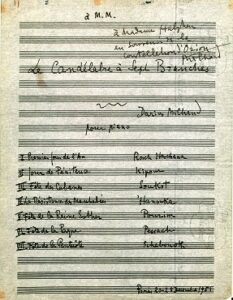 à M. M.
à Madame
en souvenir de la
Milhaud
Le Candélabre à Sept Branches
Darius Milhaud
pour piano
I Premier jour de l'An Roch Haschana
II Jour de Pénitence Kipour
III Fête des Cabanes Soukot
La Résistance des Macchabées Hanouka
V Fête de la Reine Esther Pourim
VI Fête de la Pâque Pessach
VII Fête de la Pentecôte Schabouoth
Paris Décembre 1951